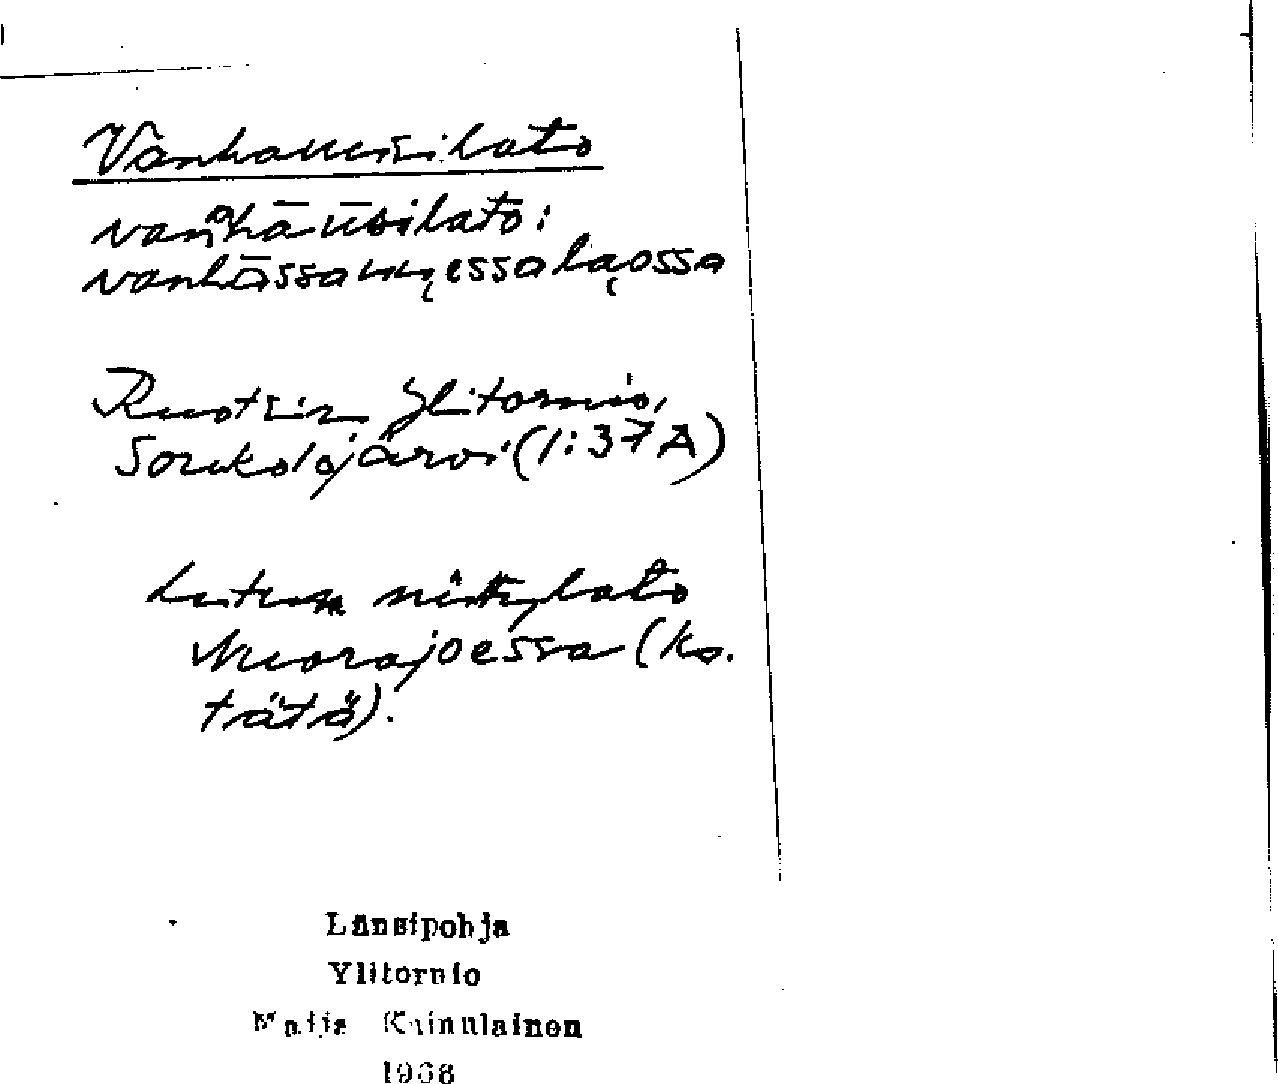 Vanhauusilato
vanhāūsilato:
vanhāssauu̮essalaossa
Ruotsin Ylitornio,
Soukolojärvi (1:37A)
Lutum niittylato
Muorajoessa (ks.
tätä).
Länsipohja
Ylitornio
Maija Kainulainen
1968